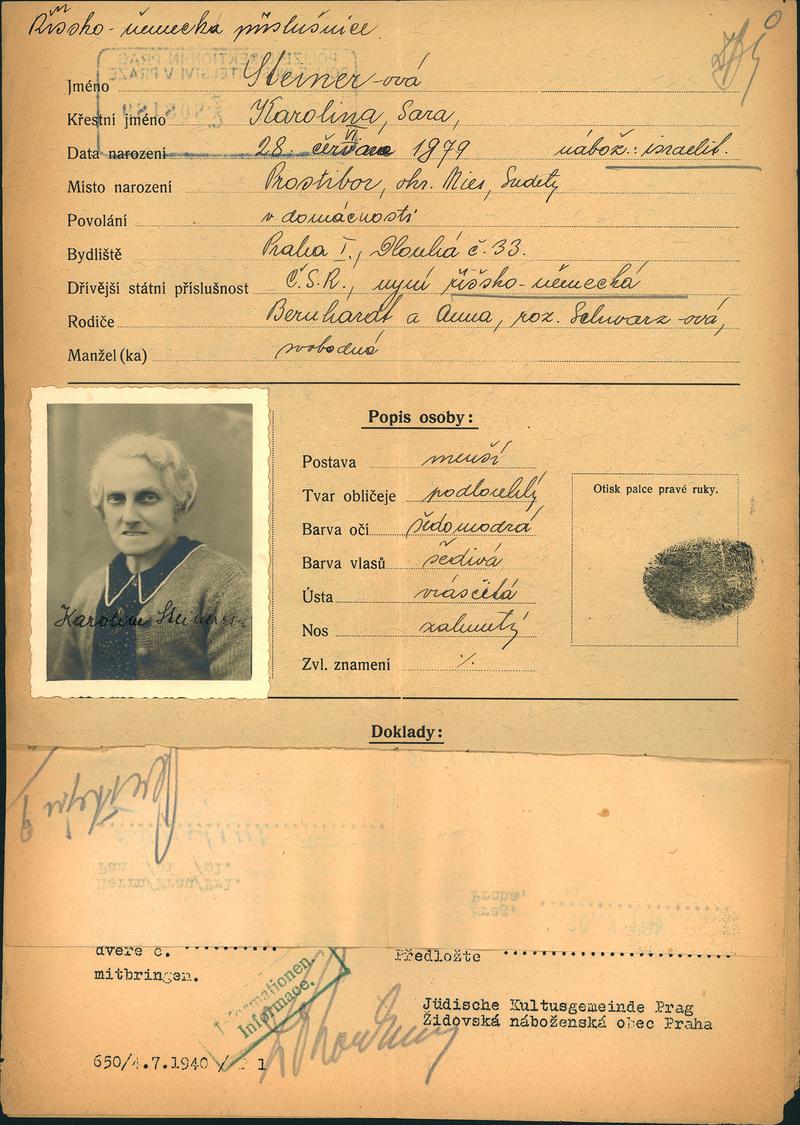 Říšsko-německá příslušnice.
Jméno Steiner-ová
Křestní jméno Karolina, Sara,
Data narození 28. června VI. 1879 nábož.: israelit.
Místo narození Prostibor, okr. Mies, Sudety
Povolání v domácnosti
Bydliště Praha I., Dlouhá č. 33.
Dřívější státní příslušnost Č.S.R., nyní říšsko-německá
Rodiče Bernhardt a Anna, roz. Schwarz-ová,
Manžel (ka) svobodná
Popis osoby:
Postava menší
Tvar obličeje podlouhlý
Barva očí šedomodrá
Barva vlasů šedivá
Ústa vrásčitá
Nos zahnutý
Zvl. znamení ·/.
Otisk palce pravé ruky.
Karolina Steinerová
Doklady:
Herrn/Frau/Frl.
Pan /pí /sl.
Prag,
Praha,
dveře c.
mitbringen.
Předložte
Informationen.
Informace.
Jüdische Kultusgemeinde Prag
Židovská náboženská obec Praha
650/4.7.1940 /